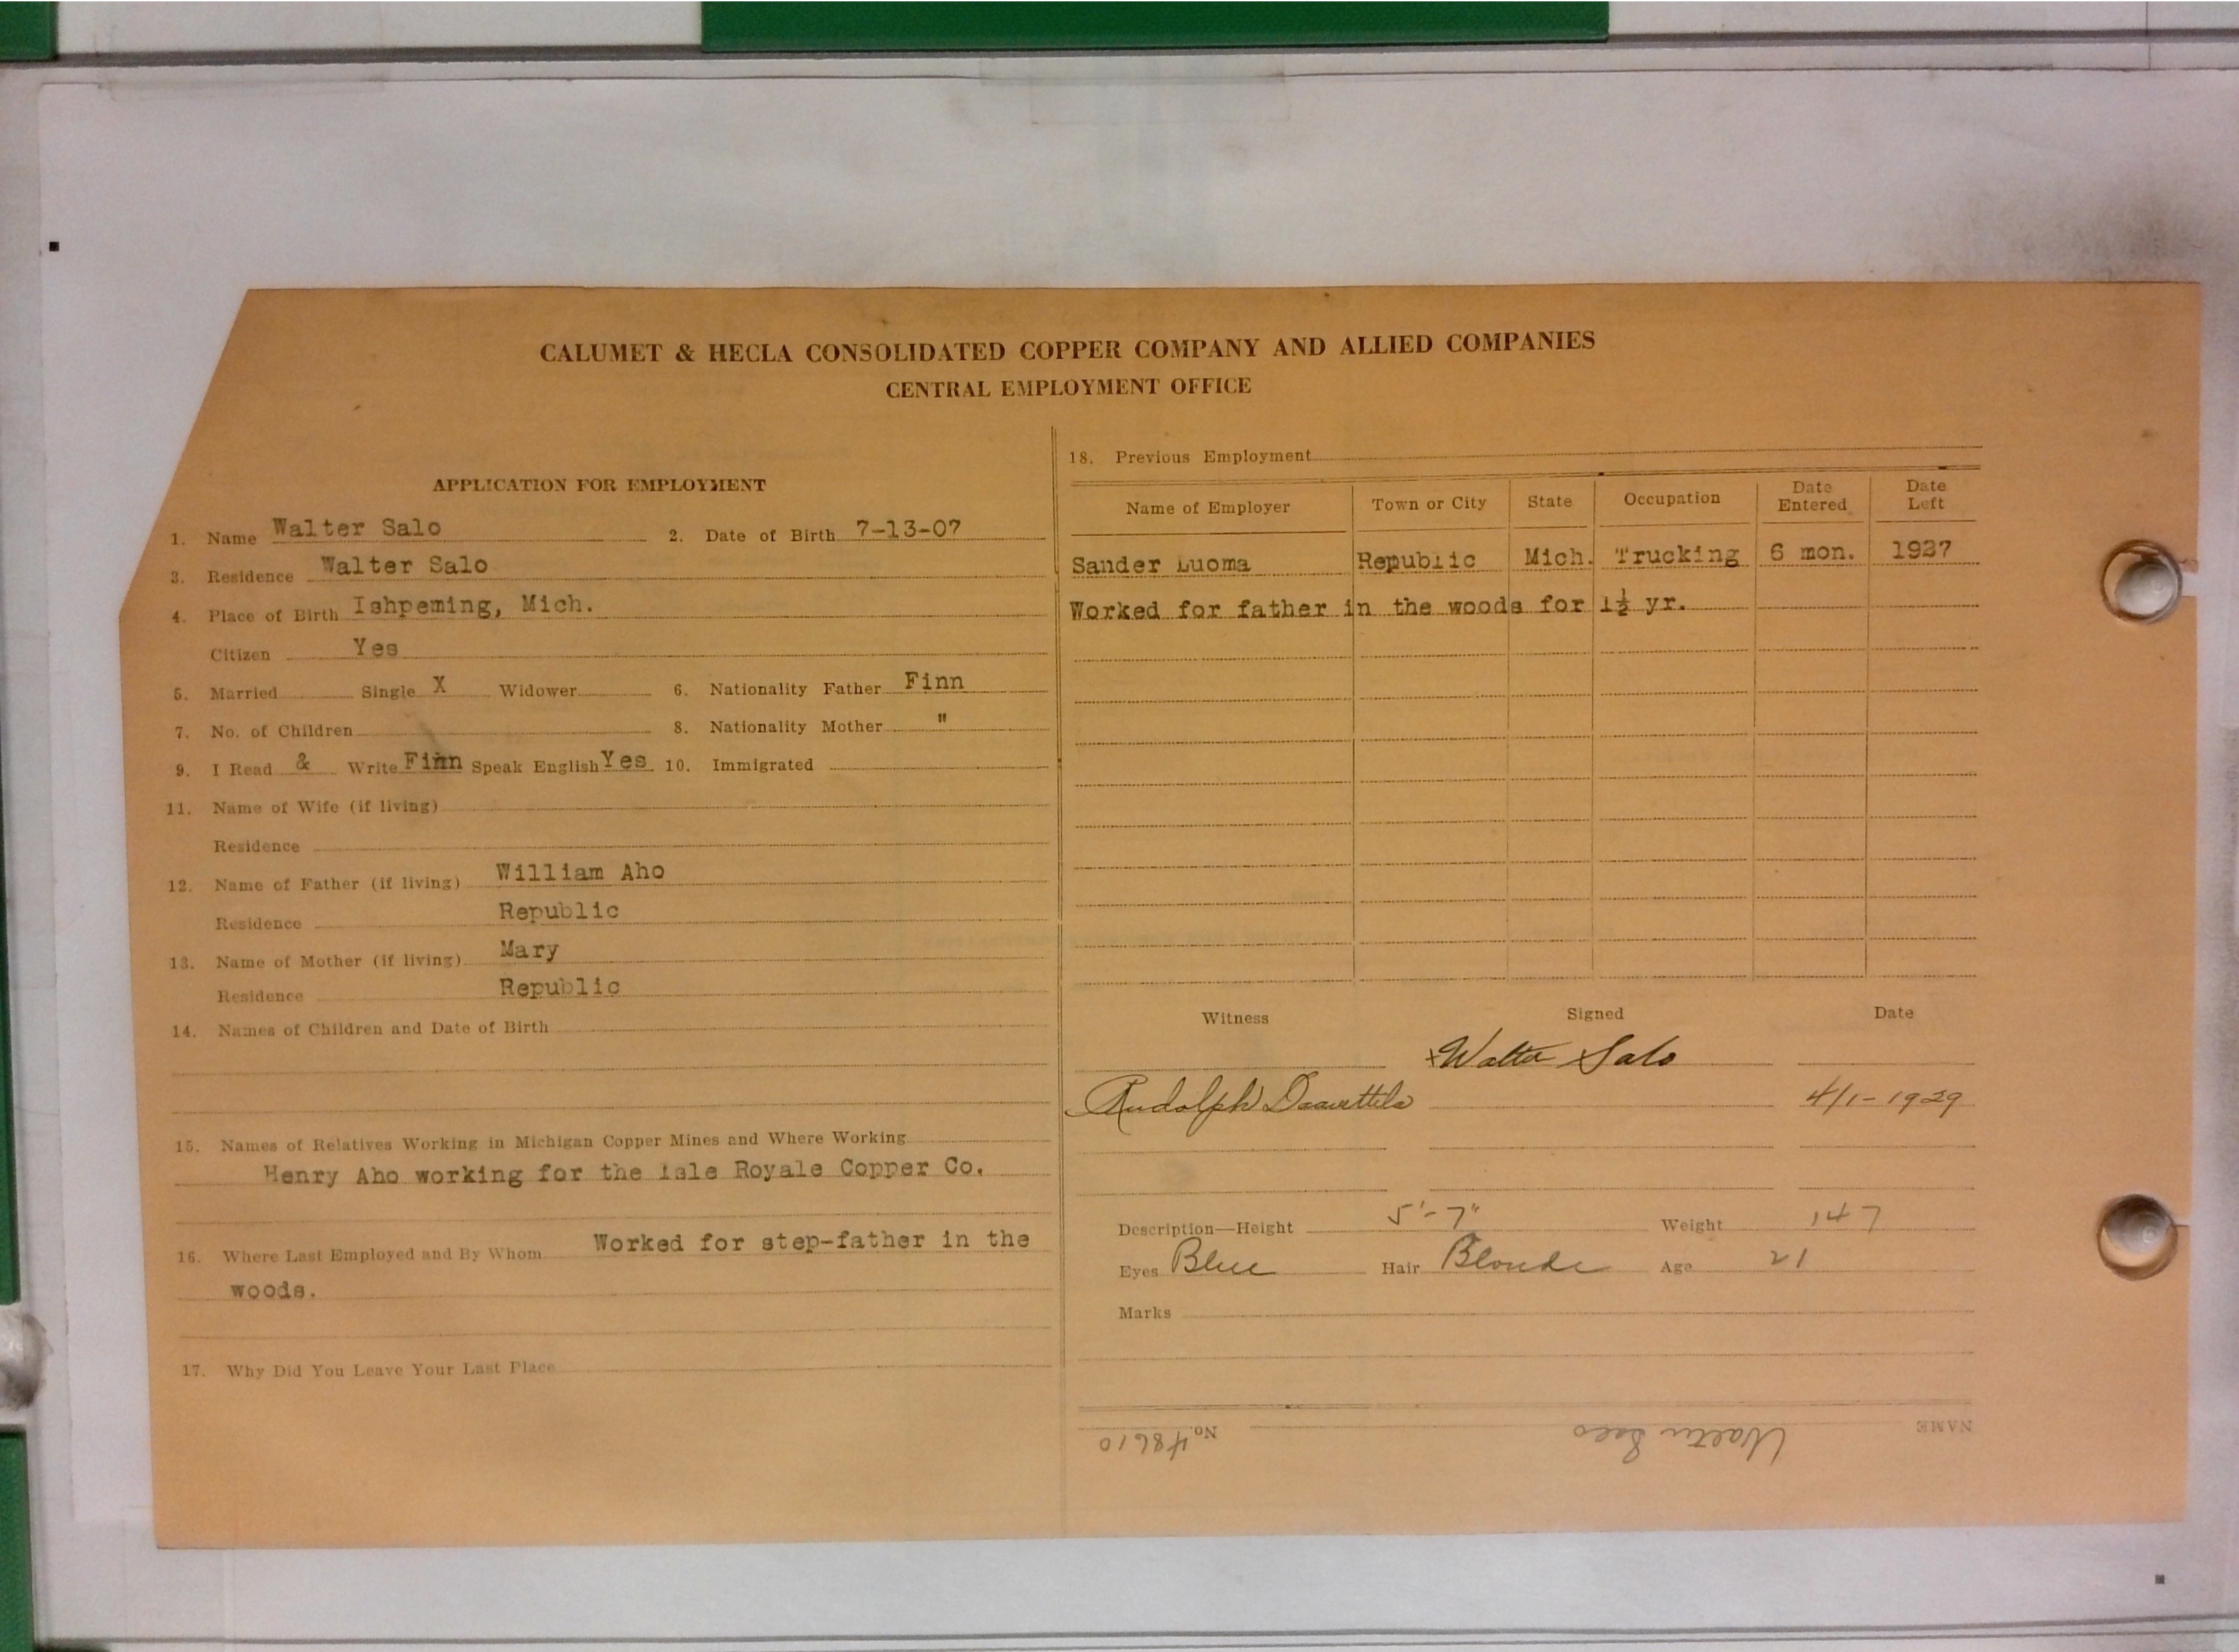 CALUMET & HECLA CONSOLIDATED COPPER COMPANY AND ALLIED COMPANIES
CENTRAL EMPLOYMENT OFFICE
APPLICATION FOR EMPLOYMENT
1. Name Walter Salo 2. Date of Birth 7-13-07
3. Residence Walter Salo
4. Place of Birth Ishpeming, Mich.
Citizen Yes
5. Married Single X Widower 6. Nationality Father Finn
7. No. of Children 8. Nationality Mother "
9. I Read & Write Finn Speak English Yes 10. Immigrated
11. Name of Wife (if living)
Residence
12. Name of Father (if living) William Aho
Residence Republic
13. Name of Mother (if living) Mary
Residence Republic
14. Names of Children and Date of Birth
15. Names of Relatives Working in Michigan Copper Mines and Where Working
Henry Aho working for the Isle Royale Copper Co.
16. Where Last Employed and By Whom Worked for step-father in the
woods.
17. Why Did You Leave Your Last Place
18. Previous Employment
Name of Employer Town or City State Occupation Date Entered Date Left
Sander Luoma Republic Mich. Trucking 6 mon. 1927
Worked for father in the woods for 1½ yr.
Witness Signed Date
x Walter Salo
Rudolph 4/1-1929
Description—Height 5'-7" Weight 147
Eyes Blue Hair Blonde Age 21
Marks
NAME Walter Salo No. 48610